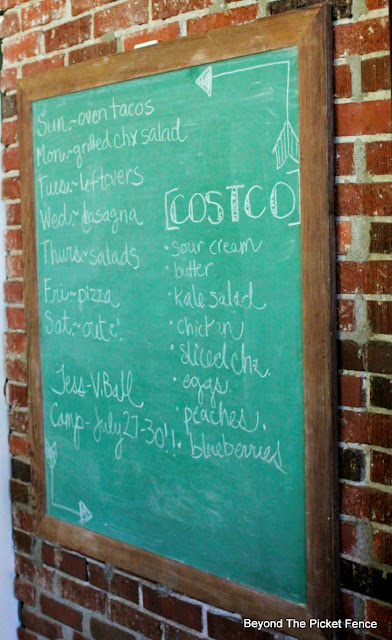 Sun.~oven tacos
Mon~grilled chx salad
Tues~leftovers
Wed.~lasagna
Thurs~salads
Fri~pizza
Sat.~out!
Jess-V.Ball
Camp-July 27-30!!
[COSTCO]
• sour cream
• butter
• kale salad
• chicken
• sliced chz.
• eggs
• peaches.
• blueberries
Beyond The Picket Fence